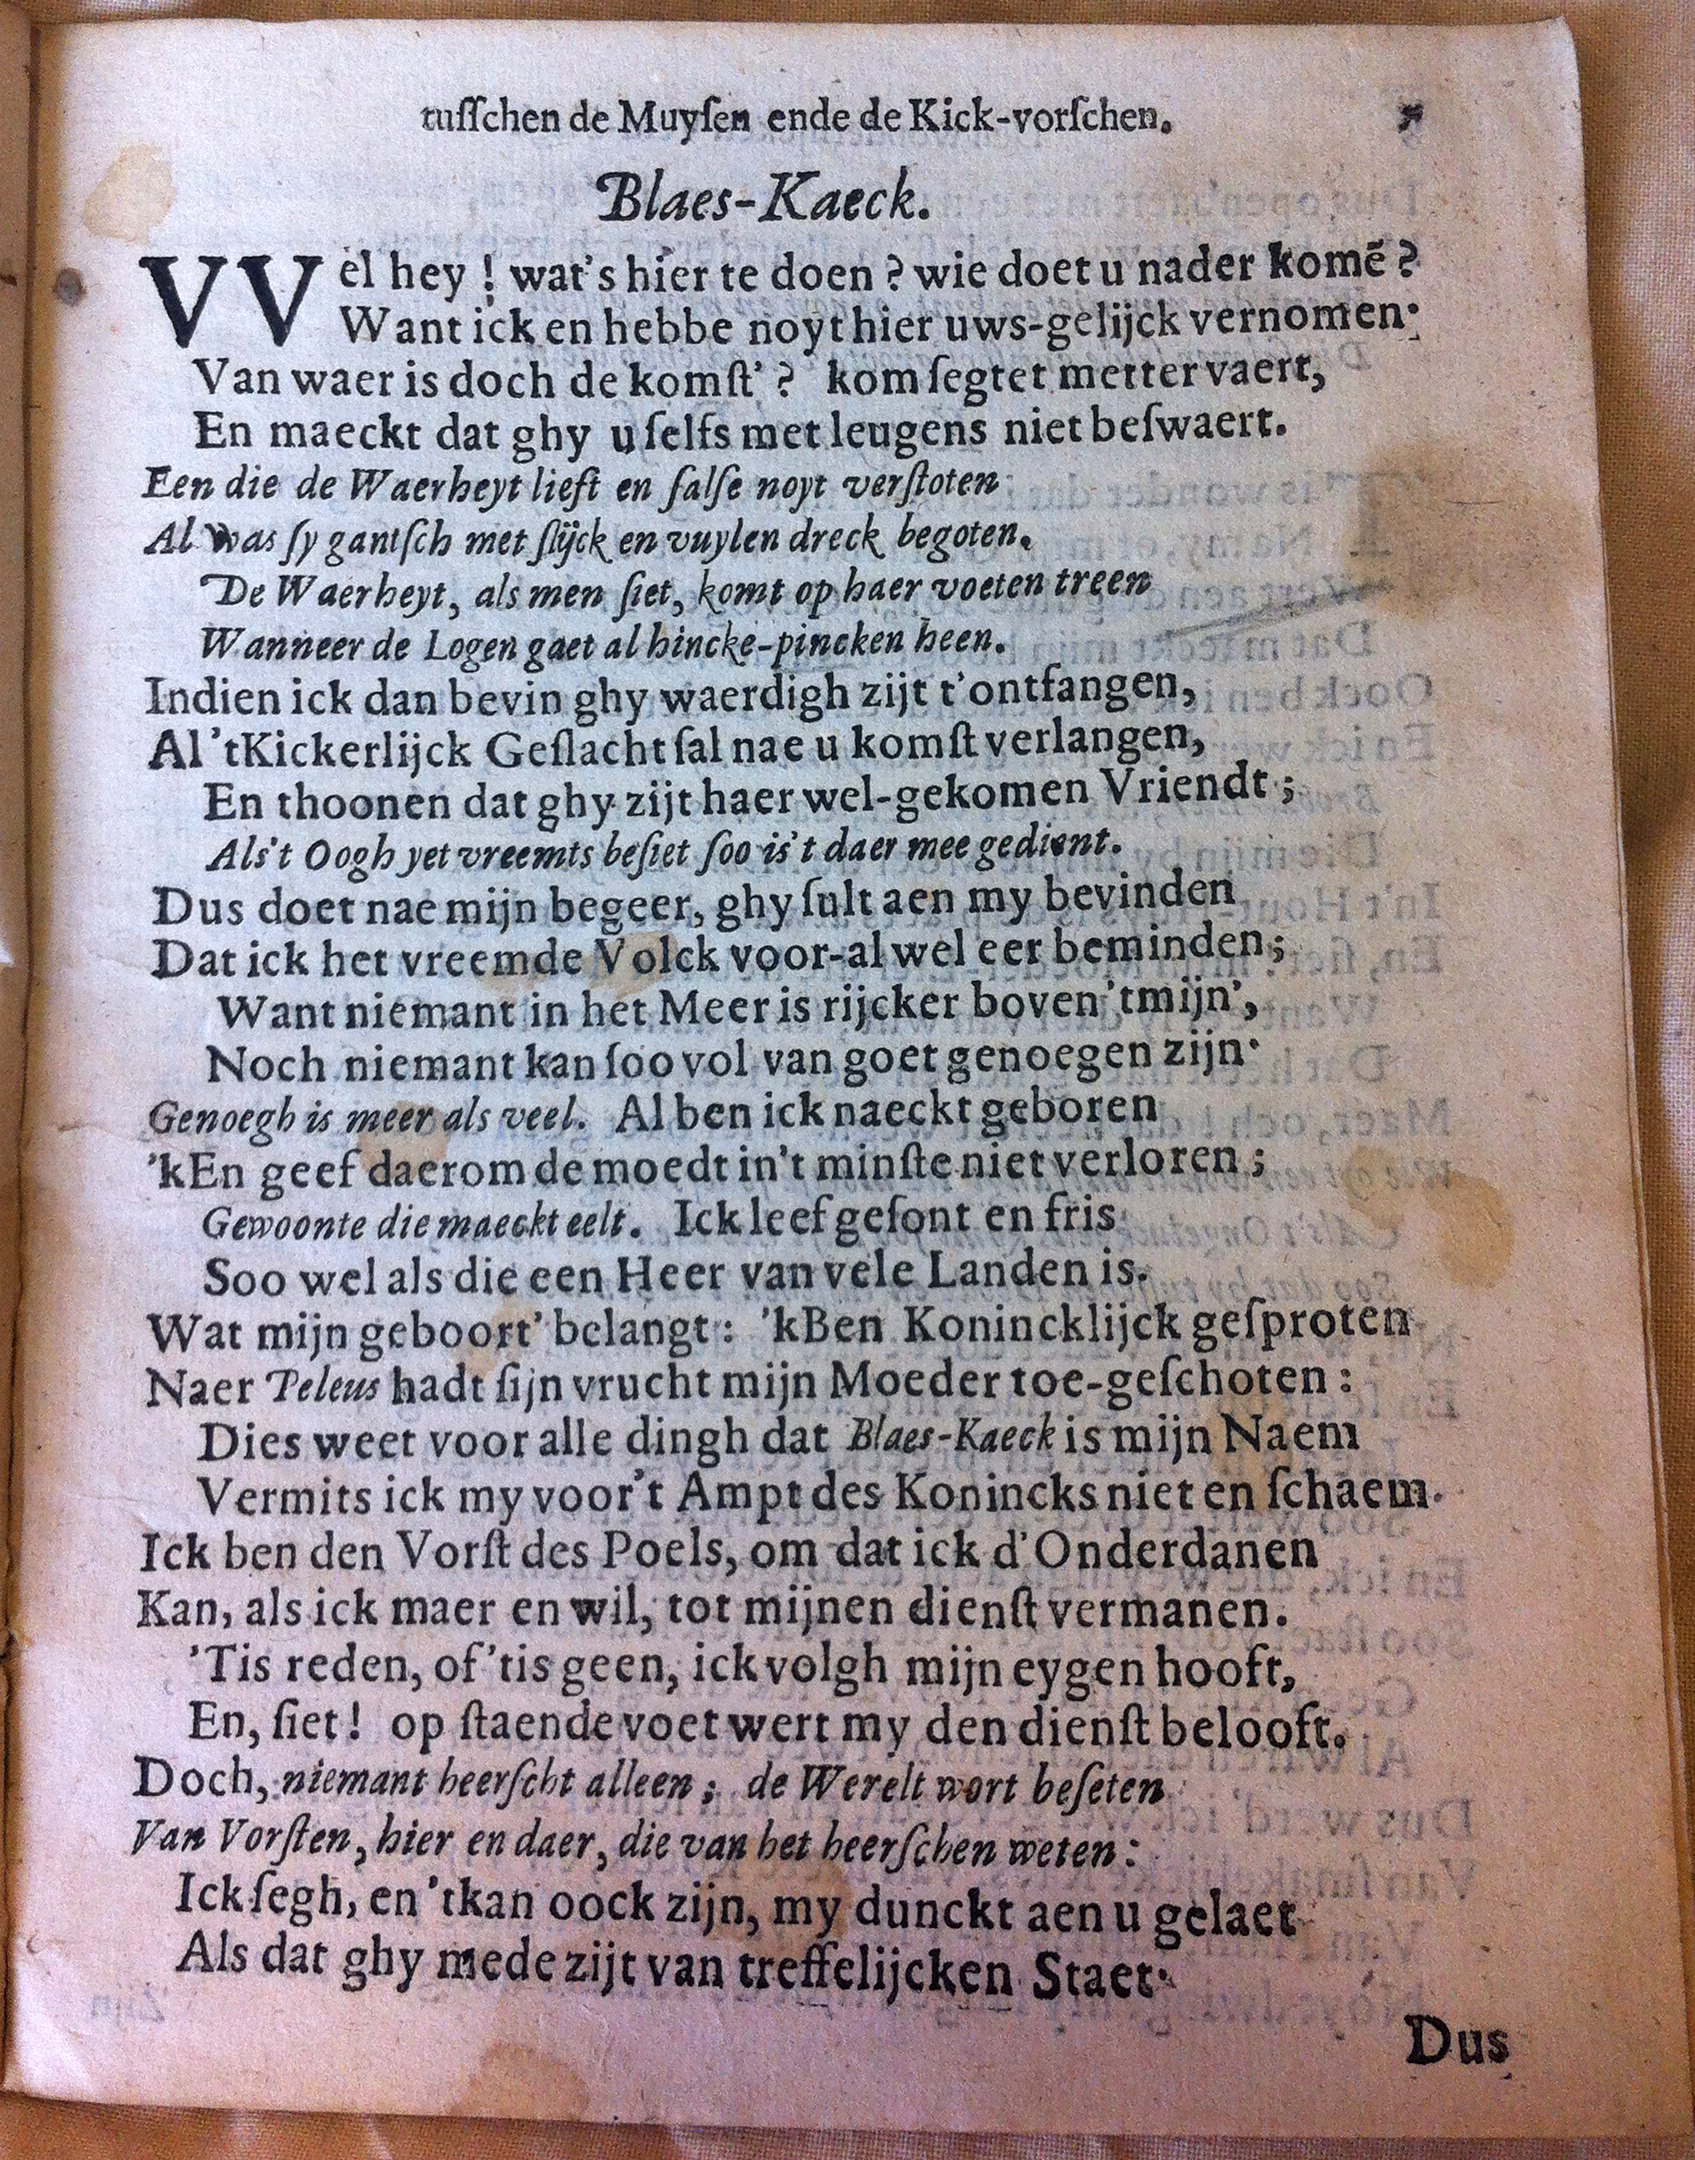 tusſchen de Muyſen ende de Kick-vorſchen.
Blaes-Kaeck.
VVel hey! wat's hier te doen? wie doet u nader komē?
Want ick en hebbe noyt hier uws-gelijck vernomen:
Van waer is doch de komſt'? kom ſegtet metter vaert,
En maeckt dat ghy u ſelfs met leugens niet beſwaert.
Een die de Waerheyt lieft en ſalſe noyt verſtoten
Al was ſy gantſch met ſlijck en vuylen dreck begoten.
De Waerheyt, als men ſiet, komt op haer voeten treen
Wanneer de Logen gaet al hincke-pincken heen.
Indien ick dan bevin ghy waerdigh zijt t'ontfangen,
Al 'tKickerlijck Geſlacht ſal nae u komſt verlangen,
En thoonen dat ghy zijt haer wel-gekomen Vriendt;
Als't Oogh yet vreemts beſiet ſoo is't daer mee gedient.
Dus doet nae mijn begeer, ghy ſult aen my bevinden
Dat ick het vreemde Volck voor-al wel eer beminden;
Want niemant in het Meer is rijcker boven 'tmijn',
Noch niemant kan ſoo vol van goet genoegen zijn.
Genoegh is meer als veel. Al ben ick naeckt geboren
'kEn geef daerom de moedt in't minſte niet verloren;
Gewoonte die maeckt eelt. Ick leef geſont en fris
Soo wel als die een Heer van vele Landen is.
Wat mijn geboort' belangt: 'kBen Konincklijck geſproten
Naer Peleus hadt ſijn vrucht mijn Moeder toe-geſchoten:
Dies weet voor alle dingh dat Blaes-Kaeck is mijn Naem
Vermits ick my voor't Ampt des Konincks niet en ſchaem.
Ick ben den Vorſt des Poels, om dat ick d'Onderdanen
Kan, als ick maer en wil, tot mijnen dienſt vermanen.
'Tis reden, of 'tis geen, ick volgh mijn eygen hooft,
En, ſiet! op ſtaende voet wert my den dienſt belooft.
Doch, niemant heerſcht alleen; de Werelt wort beſeten
Van Vorſten, hier en daer, die van het heerſchen weten:
Ick ſegh, en 'tkan oock zijn, my dunckt aen u gelaet
Als dat ghy mede zijt van treffelijcken Staet.
Dus